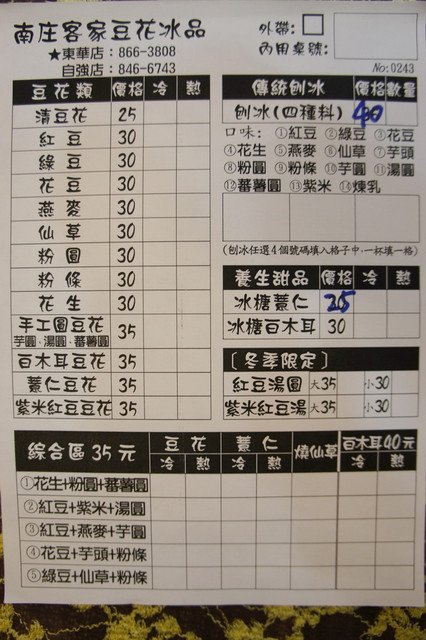 南庄客家豆花冰品
★東華店：866-3808
自強店：846-6743
外帶：
內用桌號：
No:0243
豆花類 價格 冷 熱
清豆花 25
紅豆 30
綠豆 30
花豆 30
燕麥 30
仙草 30
粉圓 30
粉條 30
花生 30
手工圓豆花 35
芋圓．湯圓．蕃薯圓
百木耳豆花 35
薏仁豆花 35
紫米紅豆豆花 35
傳統刨冰 價格 數量
刨冰(四種料) 40
口味：①紅豆 ②綠豆 ③花豆
④花生 ⑤燕麥 ⑥仙草 ⑦芋頭
⑧粉圓 ⑨粉條 ⑩芋圓 ⑪湯圓
⑫蕃薯圓 ⑬紫米 ⑭煉乳
(刨冰任選4個號碼填入格子中，一杯填一格)
養生甜品 價格 冷 熱
冰糖薏仁 35
冰糖百木耳 30
〔冬季限定〕
紅豆湯圓 大35 小30
紫米紅豆湯 大35 小30
綜合區35元 豆花 薏仁 燒仙草 百木耳40元
冷 熱 冷 熱 冷 熱
①花生+粉圓+蕃薯圓
②紅豆+紫米+湯圓
③紅豆+燕麥+芋圓
④花豆+芋頭+粉條
⑤綠豆+仙草+粉條